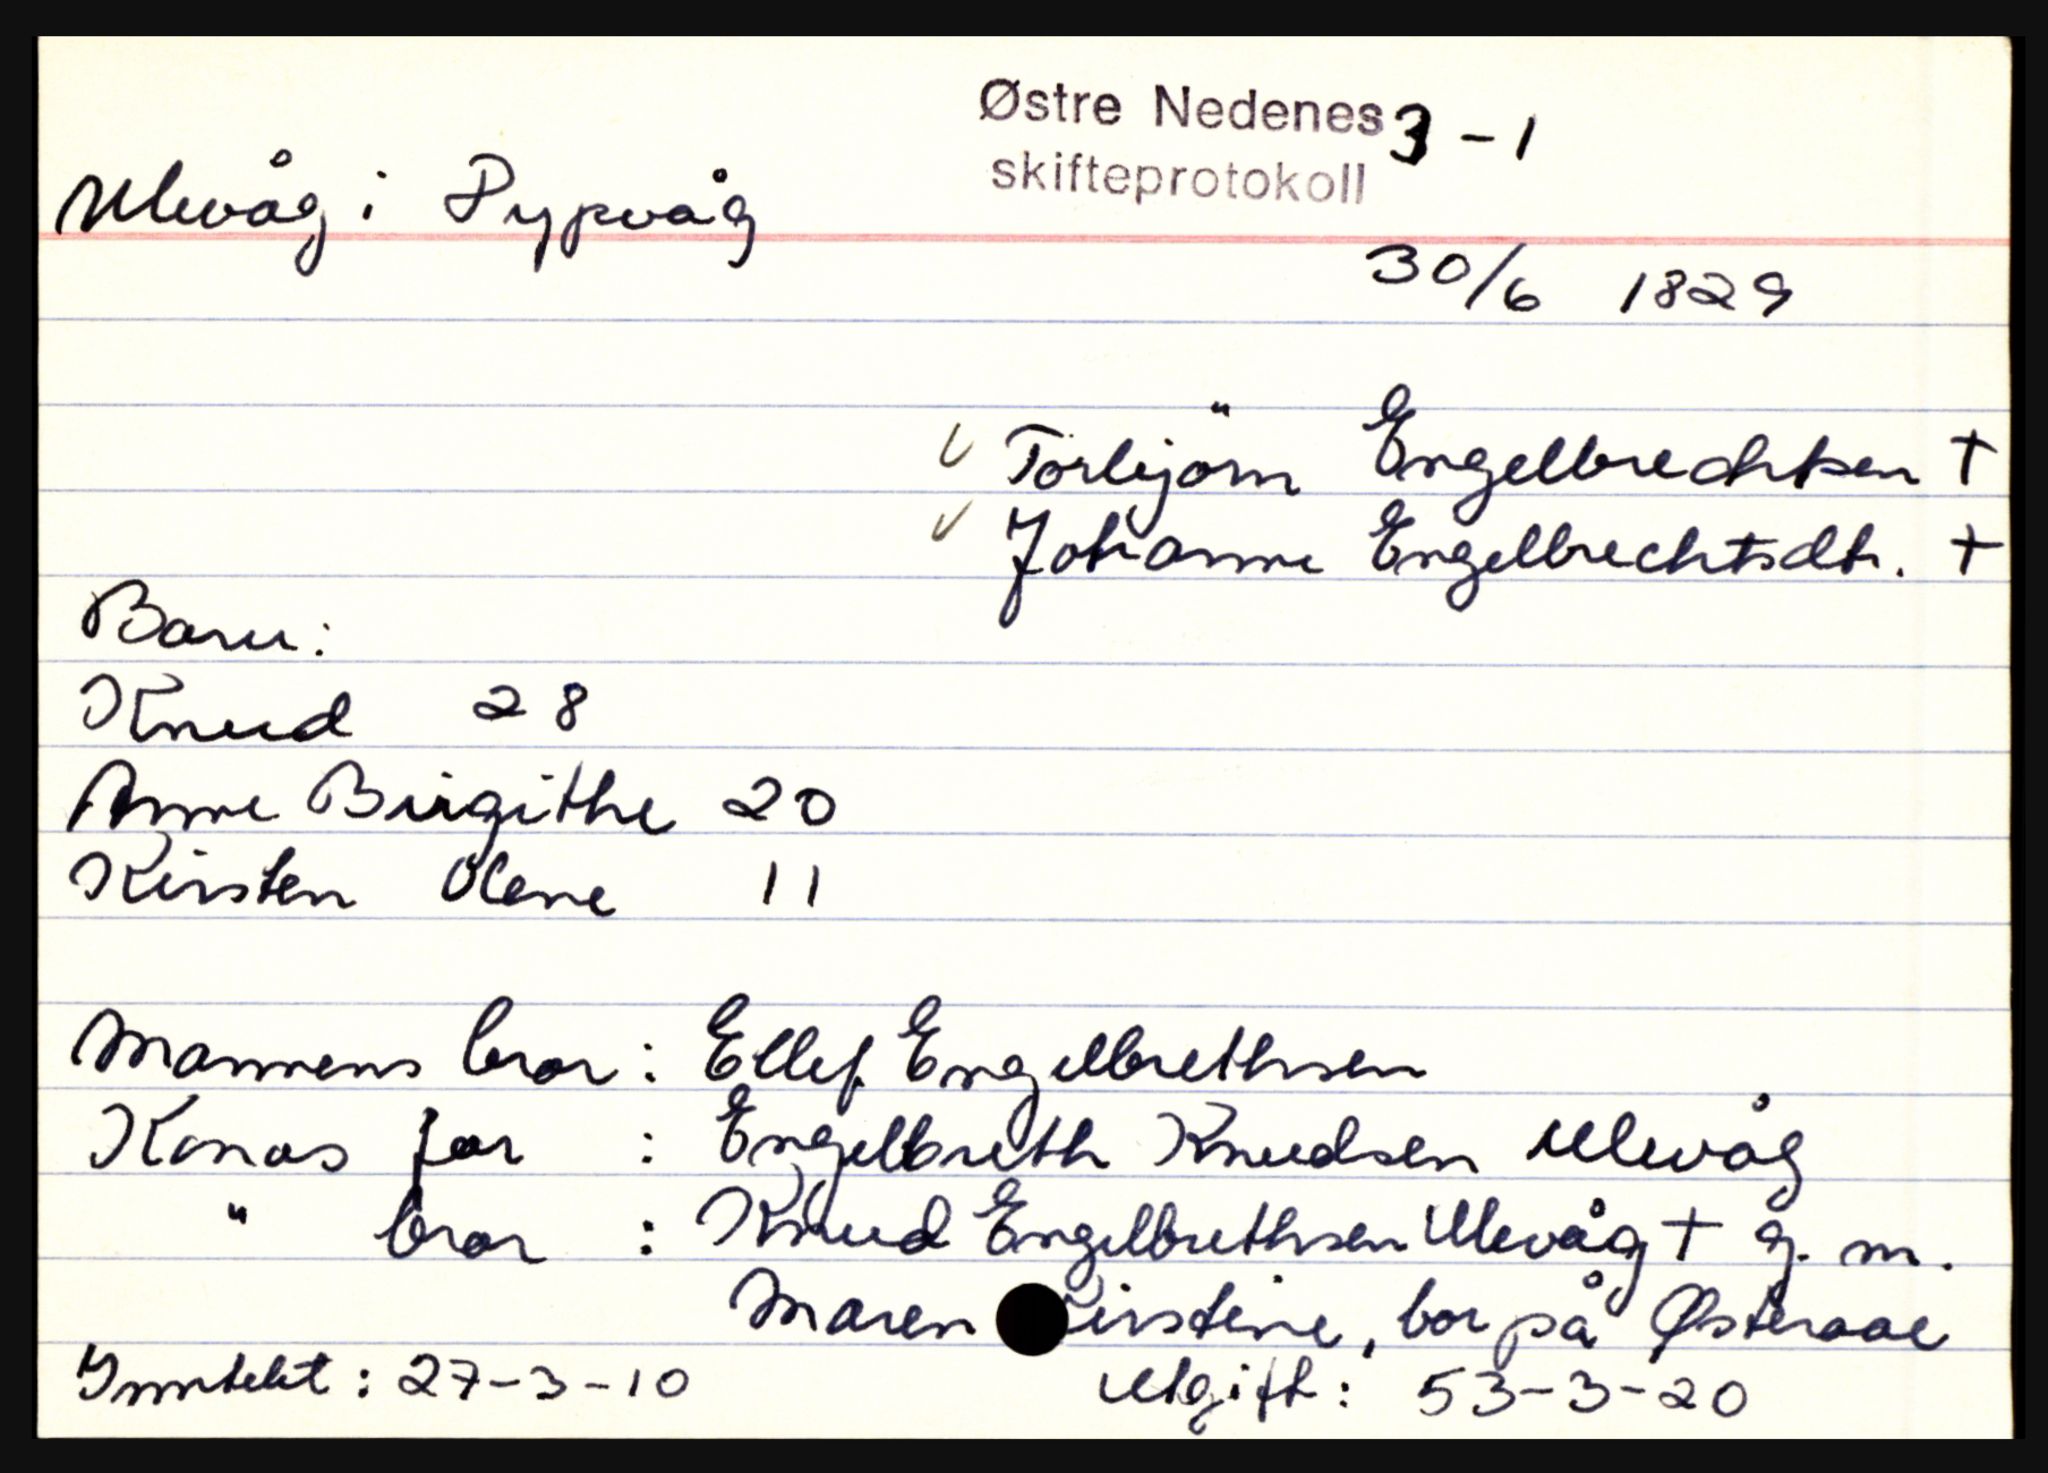 Østre Nedenes 3-1
skifteprotokoll
Ulevåg i Dypvåg
30/6 1829
Torbjörn Engelbrechtsen †
Johanne Engelbrechtsdtr. †
Barn:
Knud 28
Anne Birgithe 20
Kirsten Olene 11
Mannens bror : Ellef Engelbrethsen
Konas far : Engelbreth Knudsen Ulevåg
" bror : Knud Engelbrethsen Ulevåg † g. m.
Maren Kirstine, bor på Østeraae
Inntekt : 27-3-10 Utgift : 53-3-20